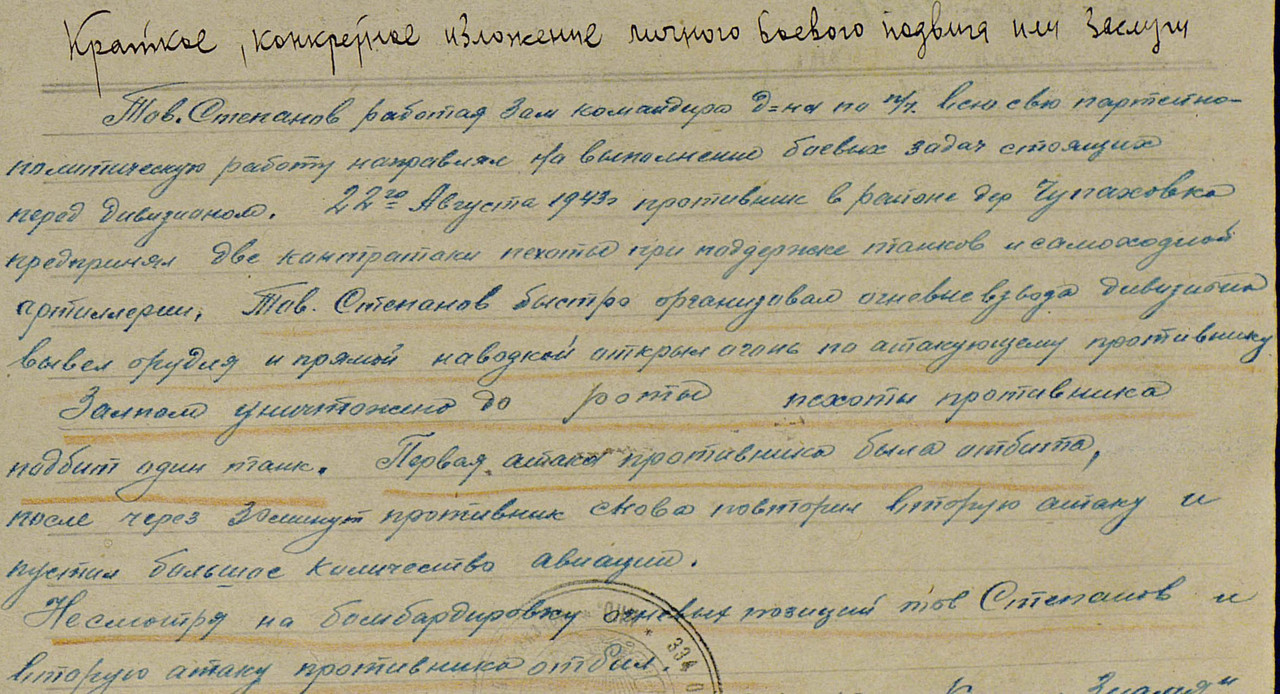 Краткое, конкретное изложение личного боевого подвига или заслуги
Тов. Степанов работая зам командира д=на по п/ч. всю свою партейно-
политическую работу направлял на выполнение боевых задач стоящих
перед дивизионом. 22го Августа 1943г противник в районе дер Чупаховка
предпринял две контратаки пехоты при поддержке танков и самоходной
артиллерии. Тов. Степанов быстро организовал огневые взвода дивизиона
вывел орудия и прямой наводкой открыл огонь по атакующему противнику
Залпом уничтожено до роты пехоты противника
подбит один танк. Первая атака противника была отбита,
после через 30 минут противник снова повторил вторую атаку и
пустил большое количество авиации.
Несмотря на бомбардировку огневых позиций тов Степанов и
вторую атаку противника отбил.
334